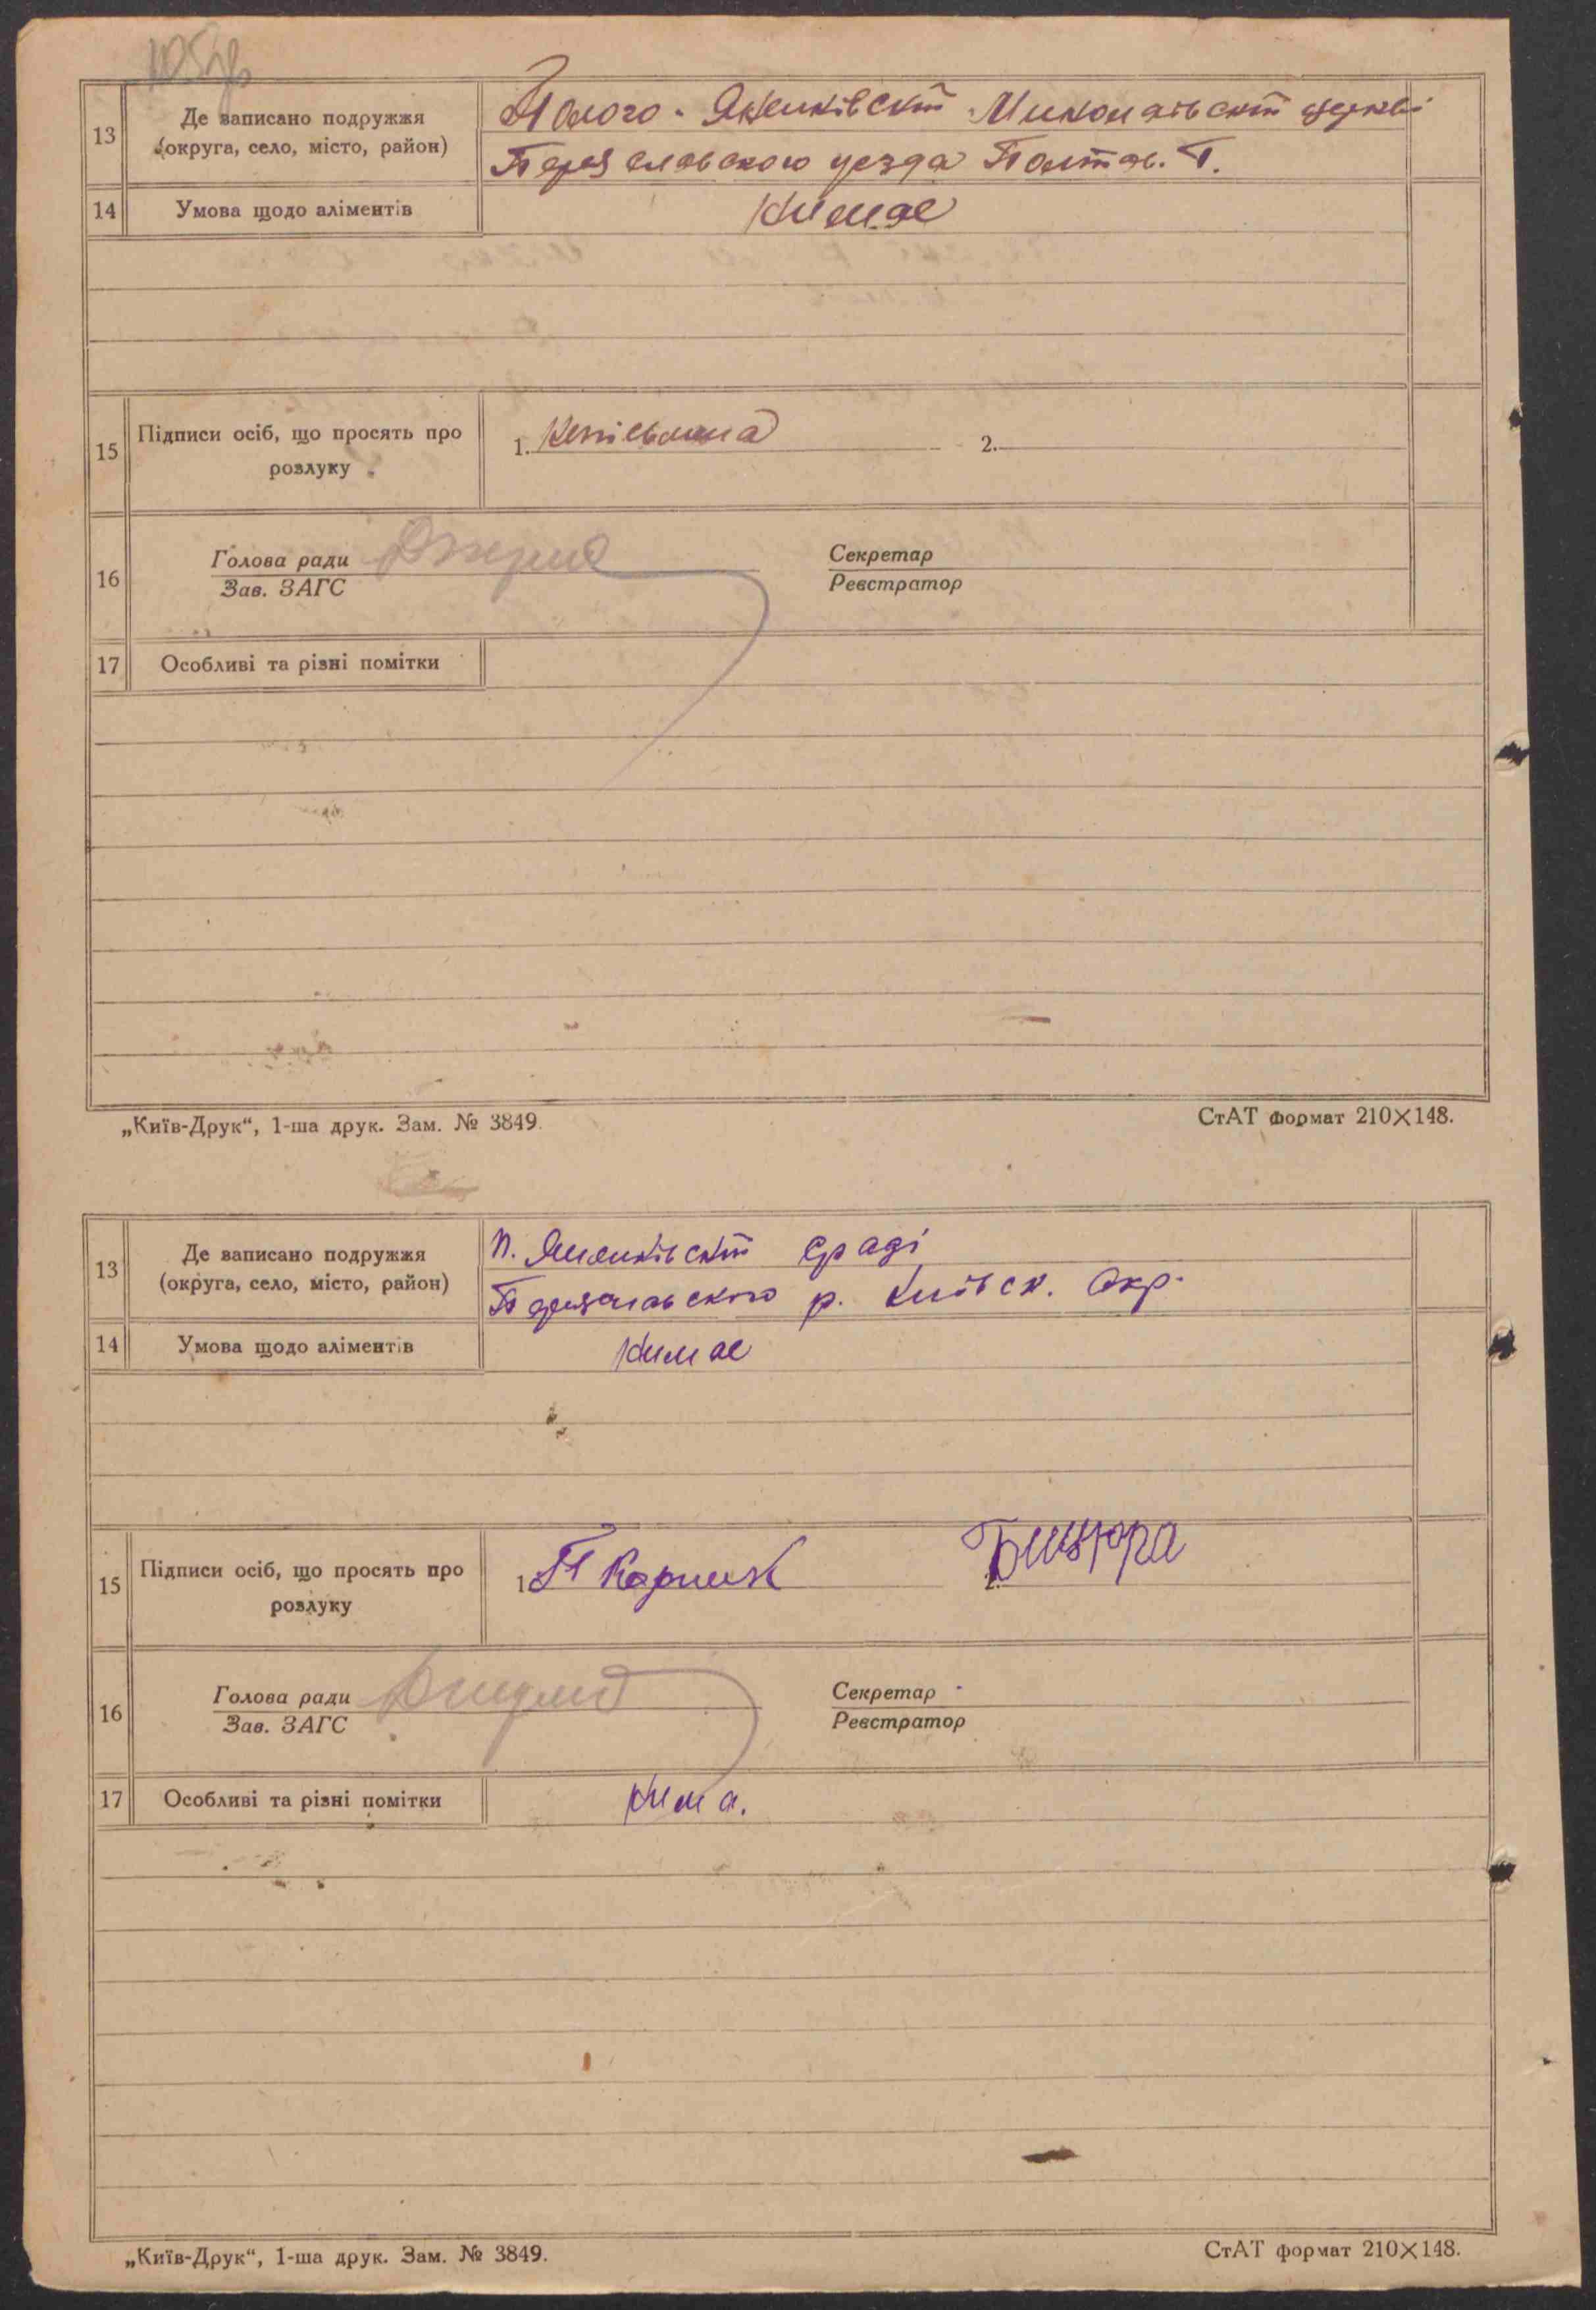 105
13 Де записано подружжя (округа, село, місто, район)
Полого-Яненківскій Миколаівскій церкві
Переяславского уезда Полтав. Г.
14 Умова щодо аліментів
Немае
15 Підписи осіб, що просять про розлуку 1. 2.
16 Голова ради Зав. ЗАГС Секретар Реєстратор
17 Особливі та різні помітки
„Київ-Друк“, 1-ша друк. Зам. № 3849. СтАТ формат 210×148.
13 Де записано подружжя (округа, село, місто, район)
П. Яненківскій с/раді
Переяславского р. Киівск. Окр.
14 Умова щодо аліментів
Немае
15 Підписи осіб, що просять про розлуку 1. П 2.
16 Голова ради Зав. ЗАГС Секретар Реєстратор
17 Особливі та різні помітки
Нема.
„Київ-Друк“, 1-ша друк. Зам. № 3849. СтАТ формат 210×148.